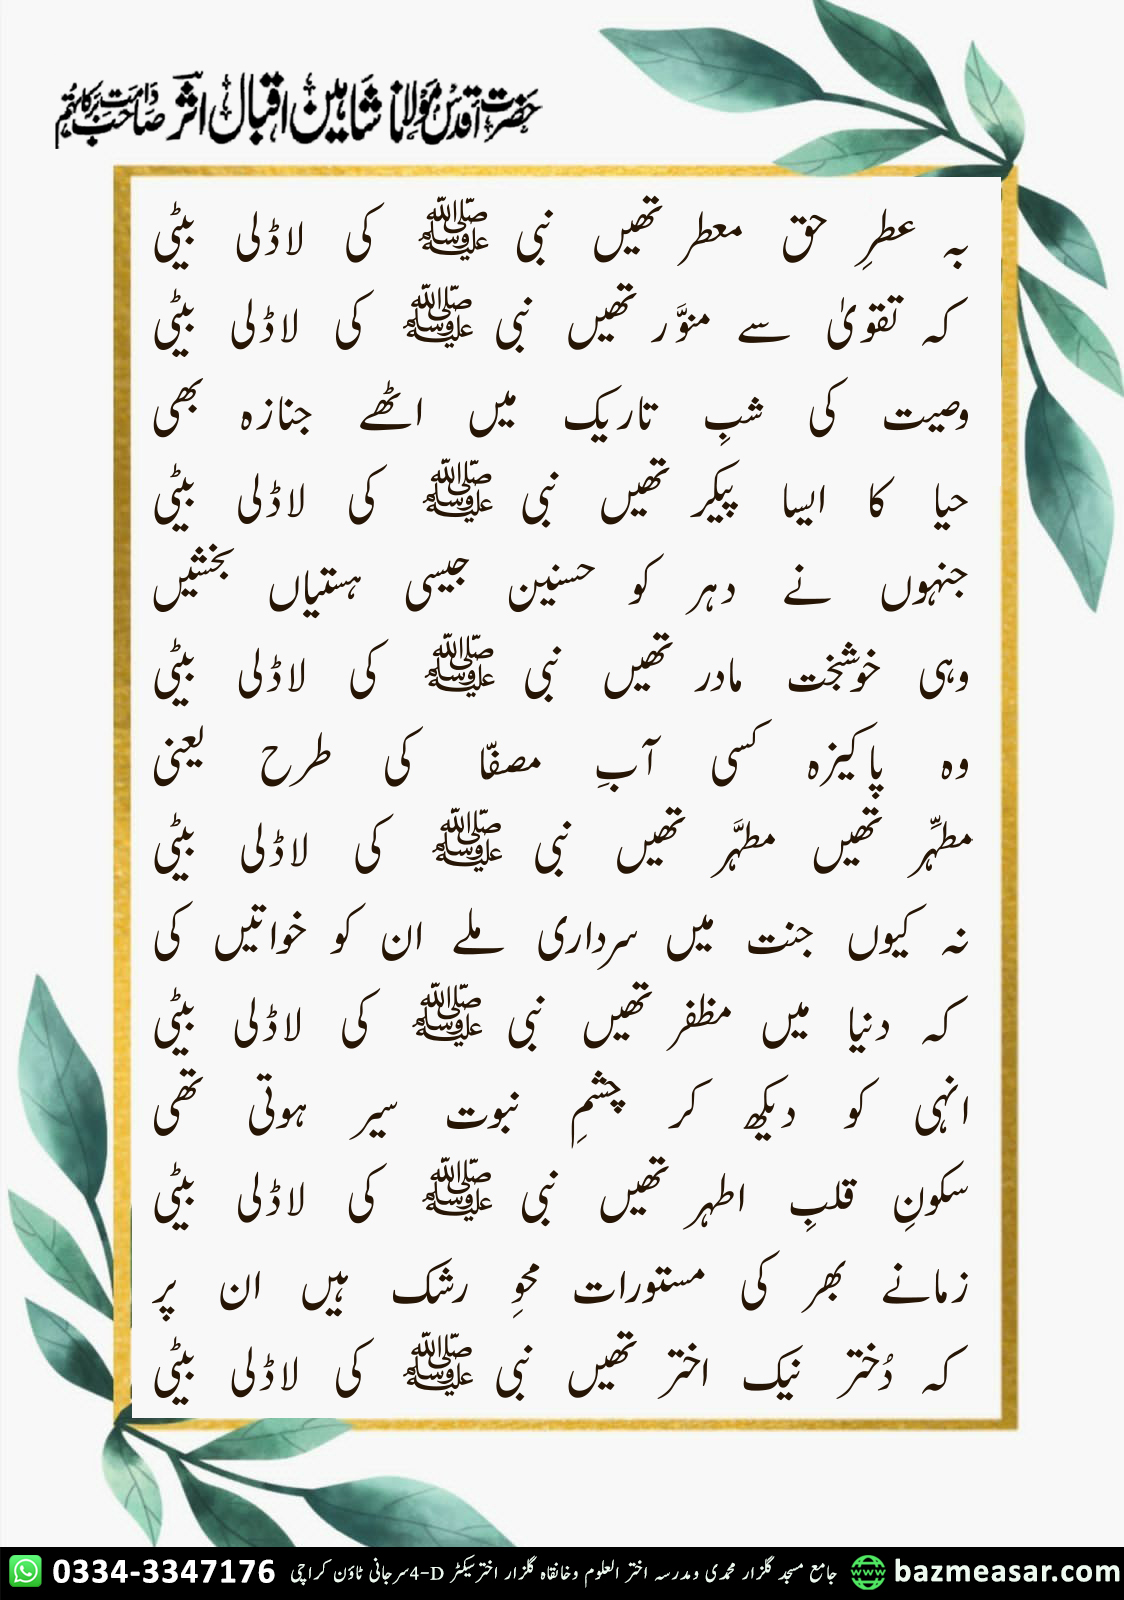 حضرت اقدس مولانا شاہین اقبال اثر صاحب دامت برکاتہم
بہ عطرِ حق معطر تھیں نبی ﷺ کی لاڈلی بیٹی
کہ تقویٰ سے منوَّر تھیں نبی ﷺ کی لاڈلی بیٹی
وصیت کی شبِ تاریک میں اٹھے جنازہ بھی
حیا کا ایسا پیکر تھیں نبی ﷺ کی لاڈلی بیٹی
جنہوں نے دہر کو حسنین جیسی ہستیاں بخشیں
وہی خوشبخت مادر تھیں نبی ﷺ کی لاڈلی بیٹی
وہ پاکیزہ کسی آبِ مصفّا کی طرح یعنی
مطہِّر تھیں مطہَّر تھیں نبی ﷺ کی لاڈلی بیٹی
نہ کیوں جنت میں سرداری ملے ان کو خواتیں کی
کہ دنیا میں مظفر تھیں نبی ﷺ کی لاڈلی بیٹی
انہی کو دیکھ کر چشمِ نبوت سیر ہوتی تھی
سکونِ قلبِ اطہر تھیں نبی ﷺ کی لاڈلی بیٹی
زمانے بھر کی مستورات محوِ رشک ہیں ان پر
کہ دُختر نیک اختر تھیں نبی ﷺ کی لاڈلی بیٹی
bazmeasar.com جامع مسجد گلزار محمدی ومدرسہ اختر العلوم وخانقاہ گلزار اختر سیکٹر 4-D سرجانی ٹاؤن کراچی 0334-3347176